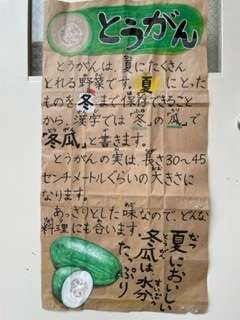 とうがん
とうがんは、夏にたくさん
とれる野菜です。夏にとった
ものを冬まで保存できること
から、漢字では「冬」の「瓜」で
"冬瓜"と書きます。
とうがんの実は、長さ30〜45
センチメートルぐらいの大きさに
なります。
あっさりとした味なので、どんな
料理にも合います。
夏においしい
冬瓜は水分
たっぷり